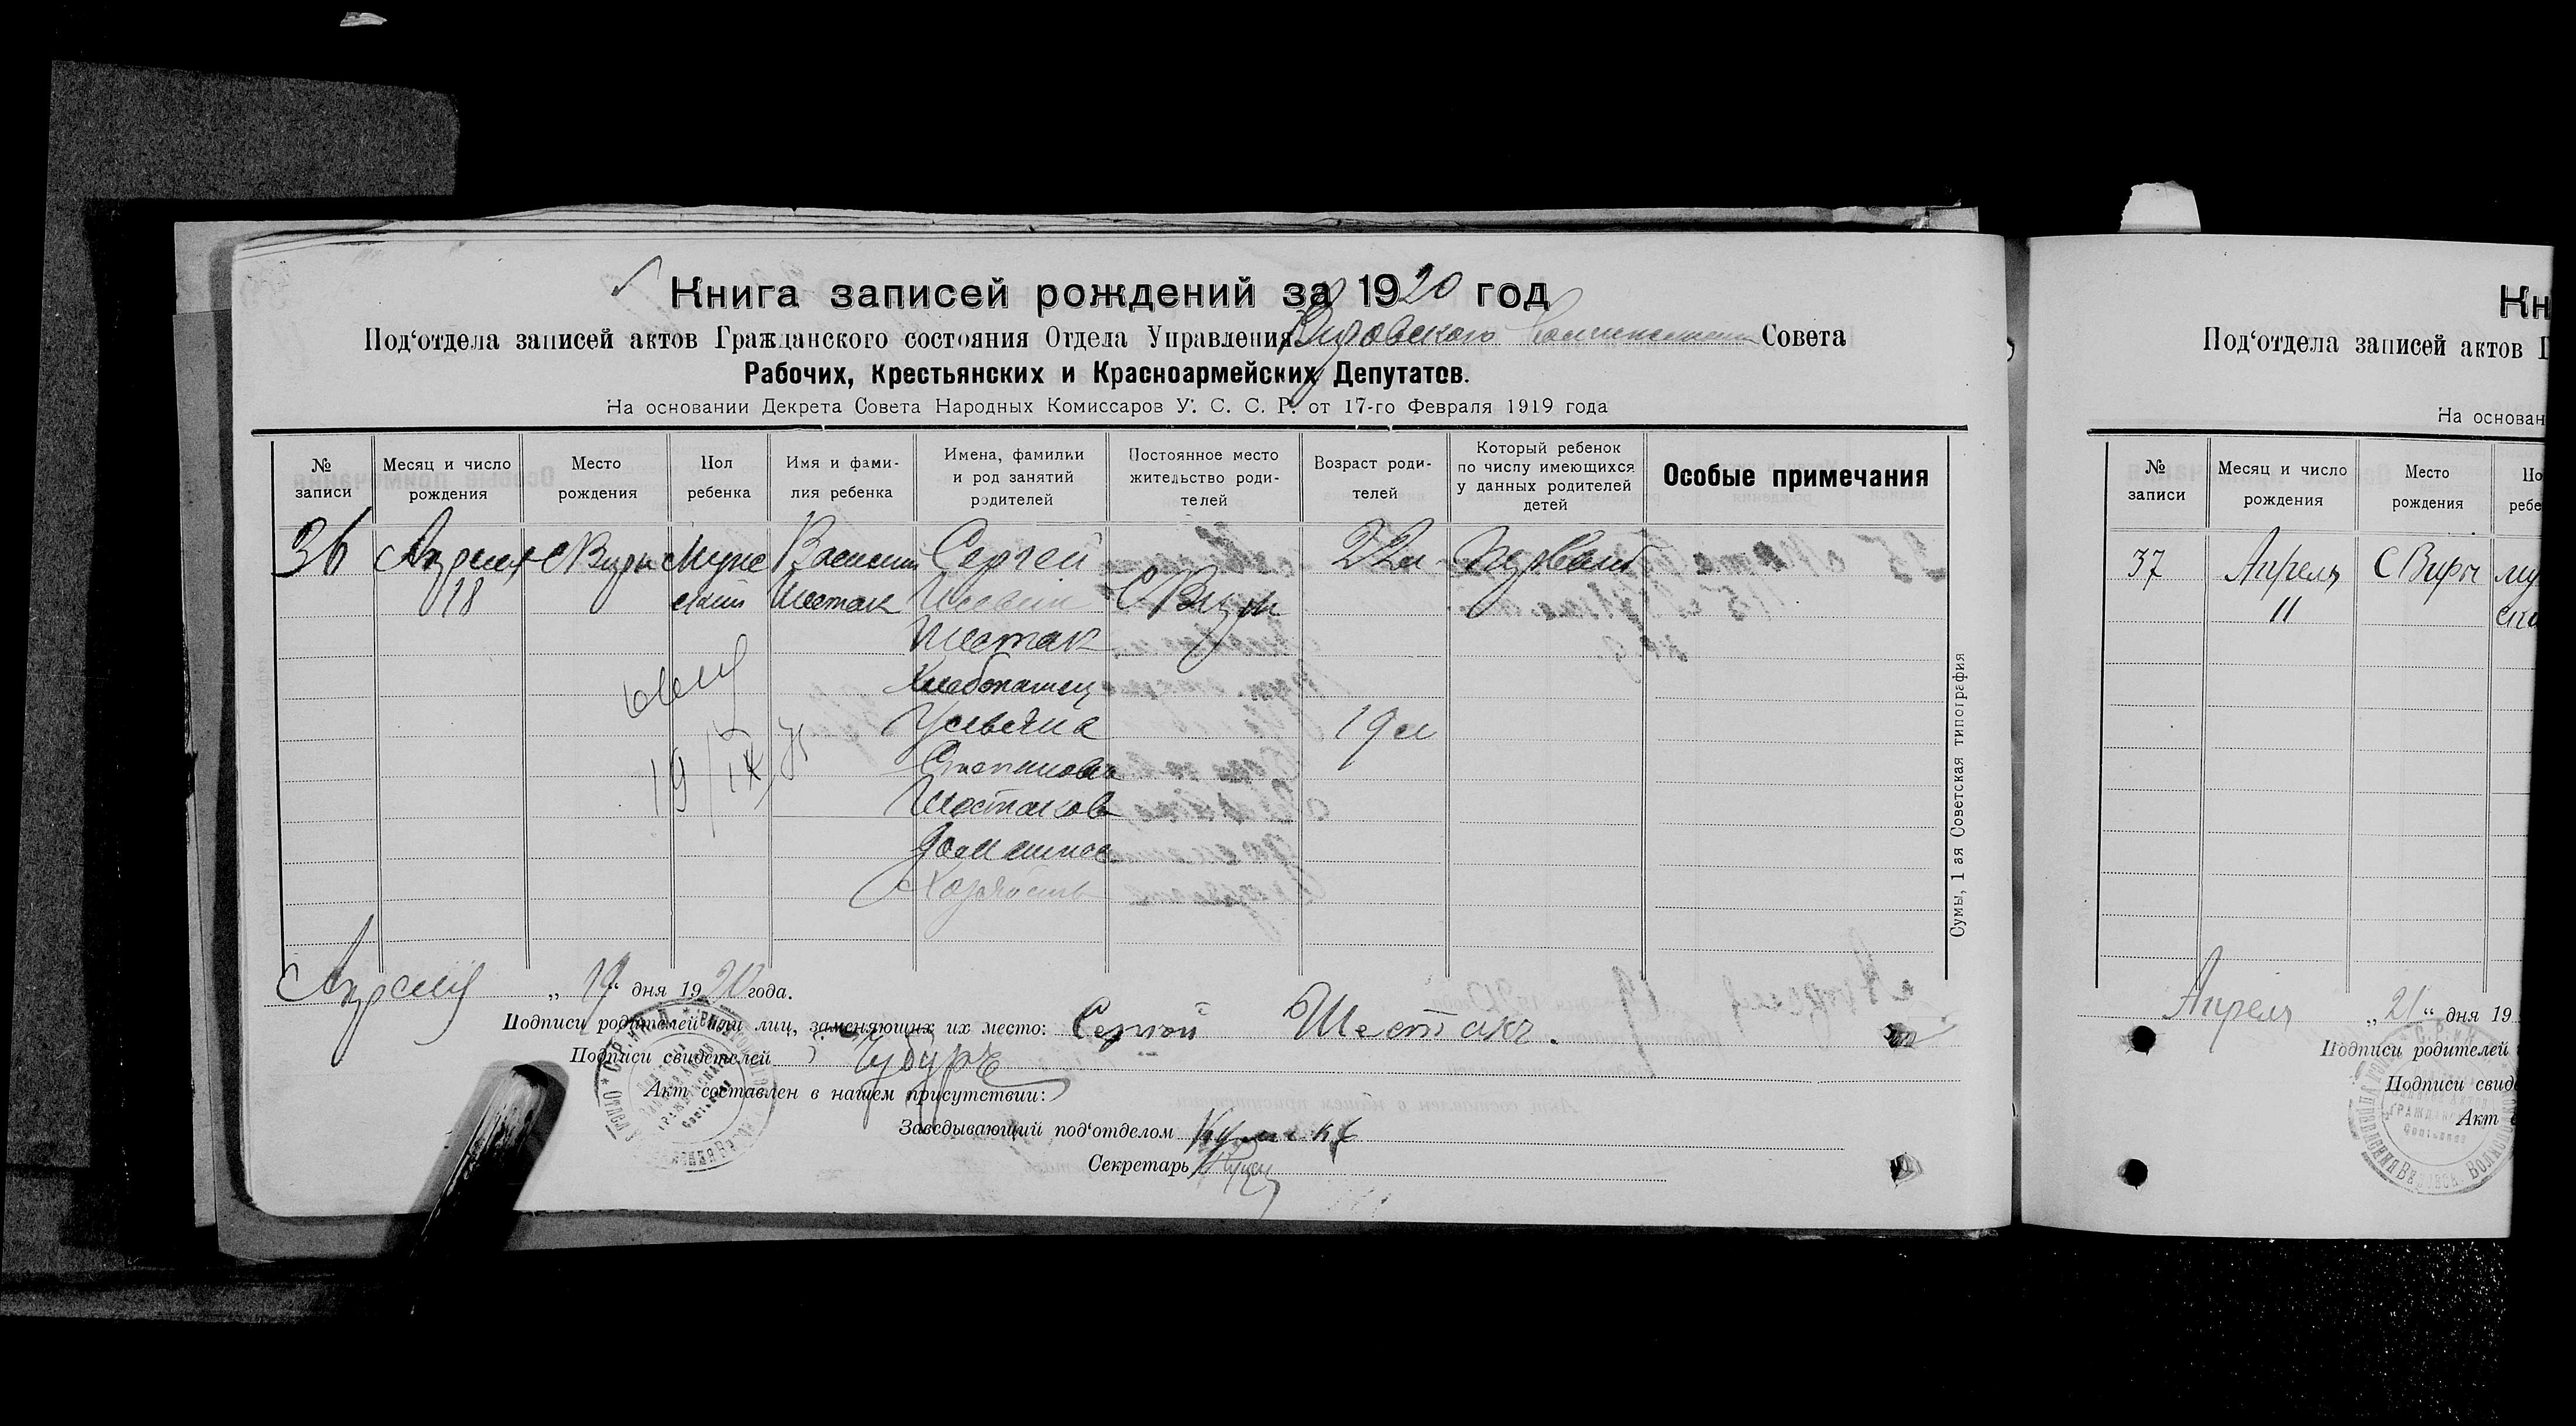 Книга записей рождений за 1920 год
Под‘отдела записей актов Гражданского состояния Отдела Управления Вировского Совета
Рабочих, Крестьянских и Красноармейских Депутатов.
На основании Декрета Совета Народных Комиссаров У. С. С. Р. от 17-го Февраля 1919 года
№ записи
Месяц и число рождения
Место рождения
Пол ребенка
Имя и фамилия ребенка
Имена, фамилии и род занятий родителей
Постоянное место жительство родителей
Возраст родителей
Который ребенок по числу имеющихся у данных родителей детей
Особые примечания
36 Апреля С Виры Муже Василий Сергей 22 л Первый
18 ский Шестак С Виры
Шестак
Хлебопашец
Ульяна 19 л
Степановна
Шестакова
домашнее
Хозяйство
19/IX
Апреля „19“ дня 1920 года.
Подписи родителей или лиц, заменяющих их место: Сергей Шестакъ.
Подписи свидетелей Чубуръ
Акт составлен в нашем присутствии:
Заведывающий под‘отделом
Секретарь
Сумы, 1-ая Советская типография
Кн
Под‘отдела записей актов Г
На основан
№ записи
Месяц и число рождения
Место рождения
По
ребе
37 Апрель С Виры му
11 ско
Апреля „21“ дня 19
Подписи родителей
Подписи свид
Акт